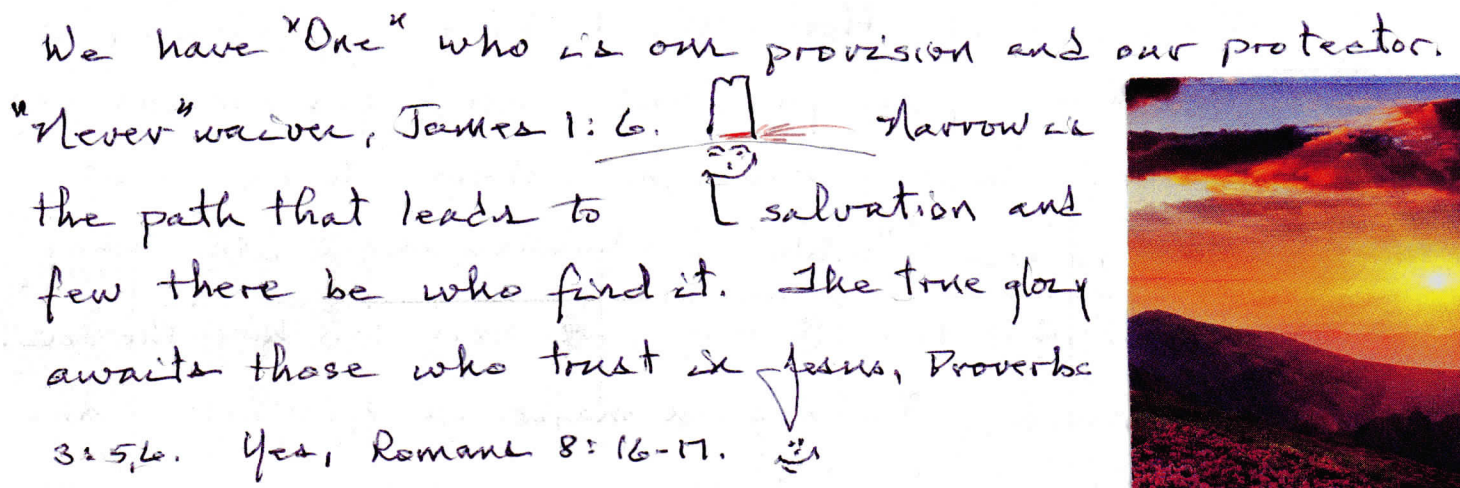 We have "One" who is our provision and our protector.
"Never" waiver, James 1:6. Narrow is
the path that leads to salvation and
few there be who find it. The true glory
awaits those who trust in Jesus, Proverbs
3:5,6. Yes, Romans 8:16-17.